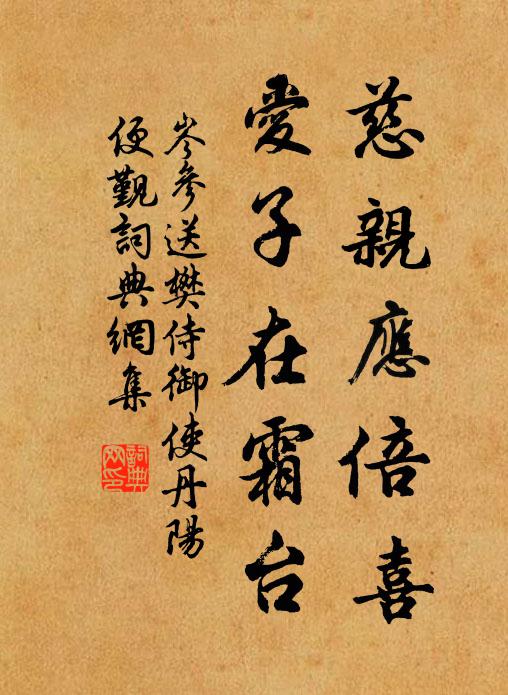 慈親應倍喜
愛子在霜台
岑參送樊侍御使丹陽
便覲詞典網集
詞典網印